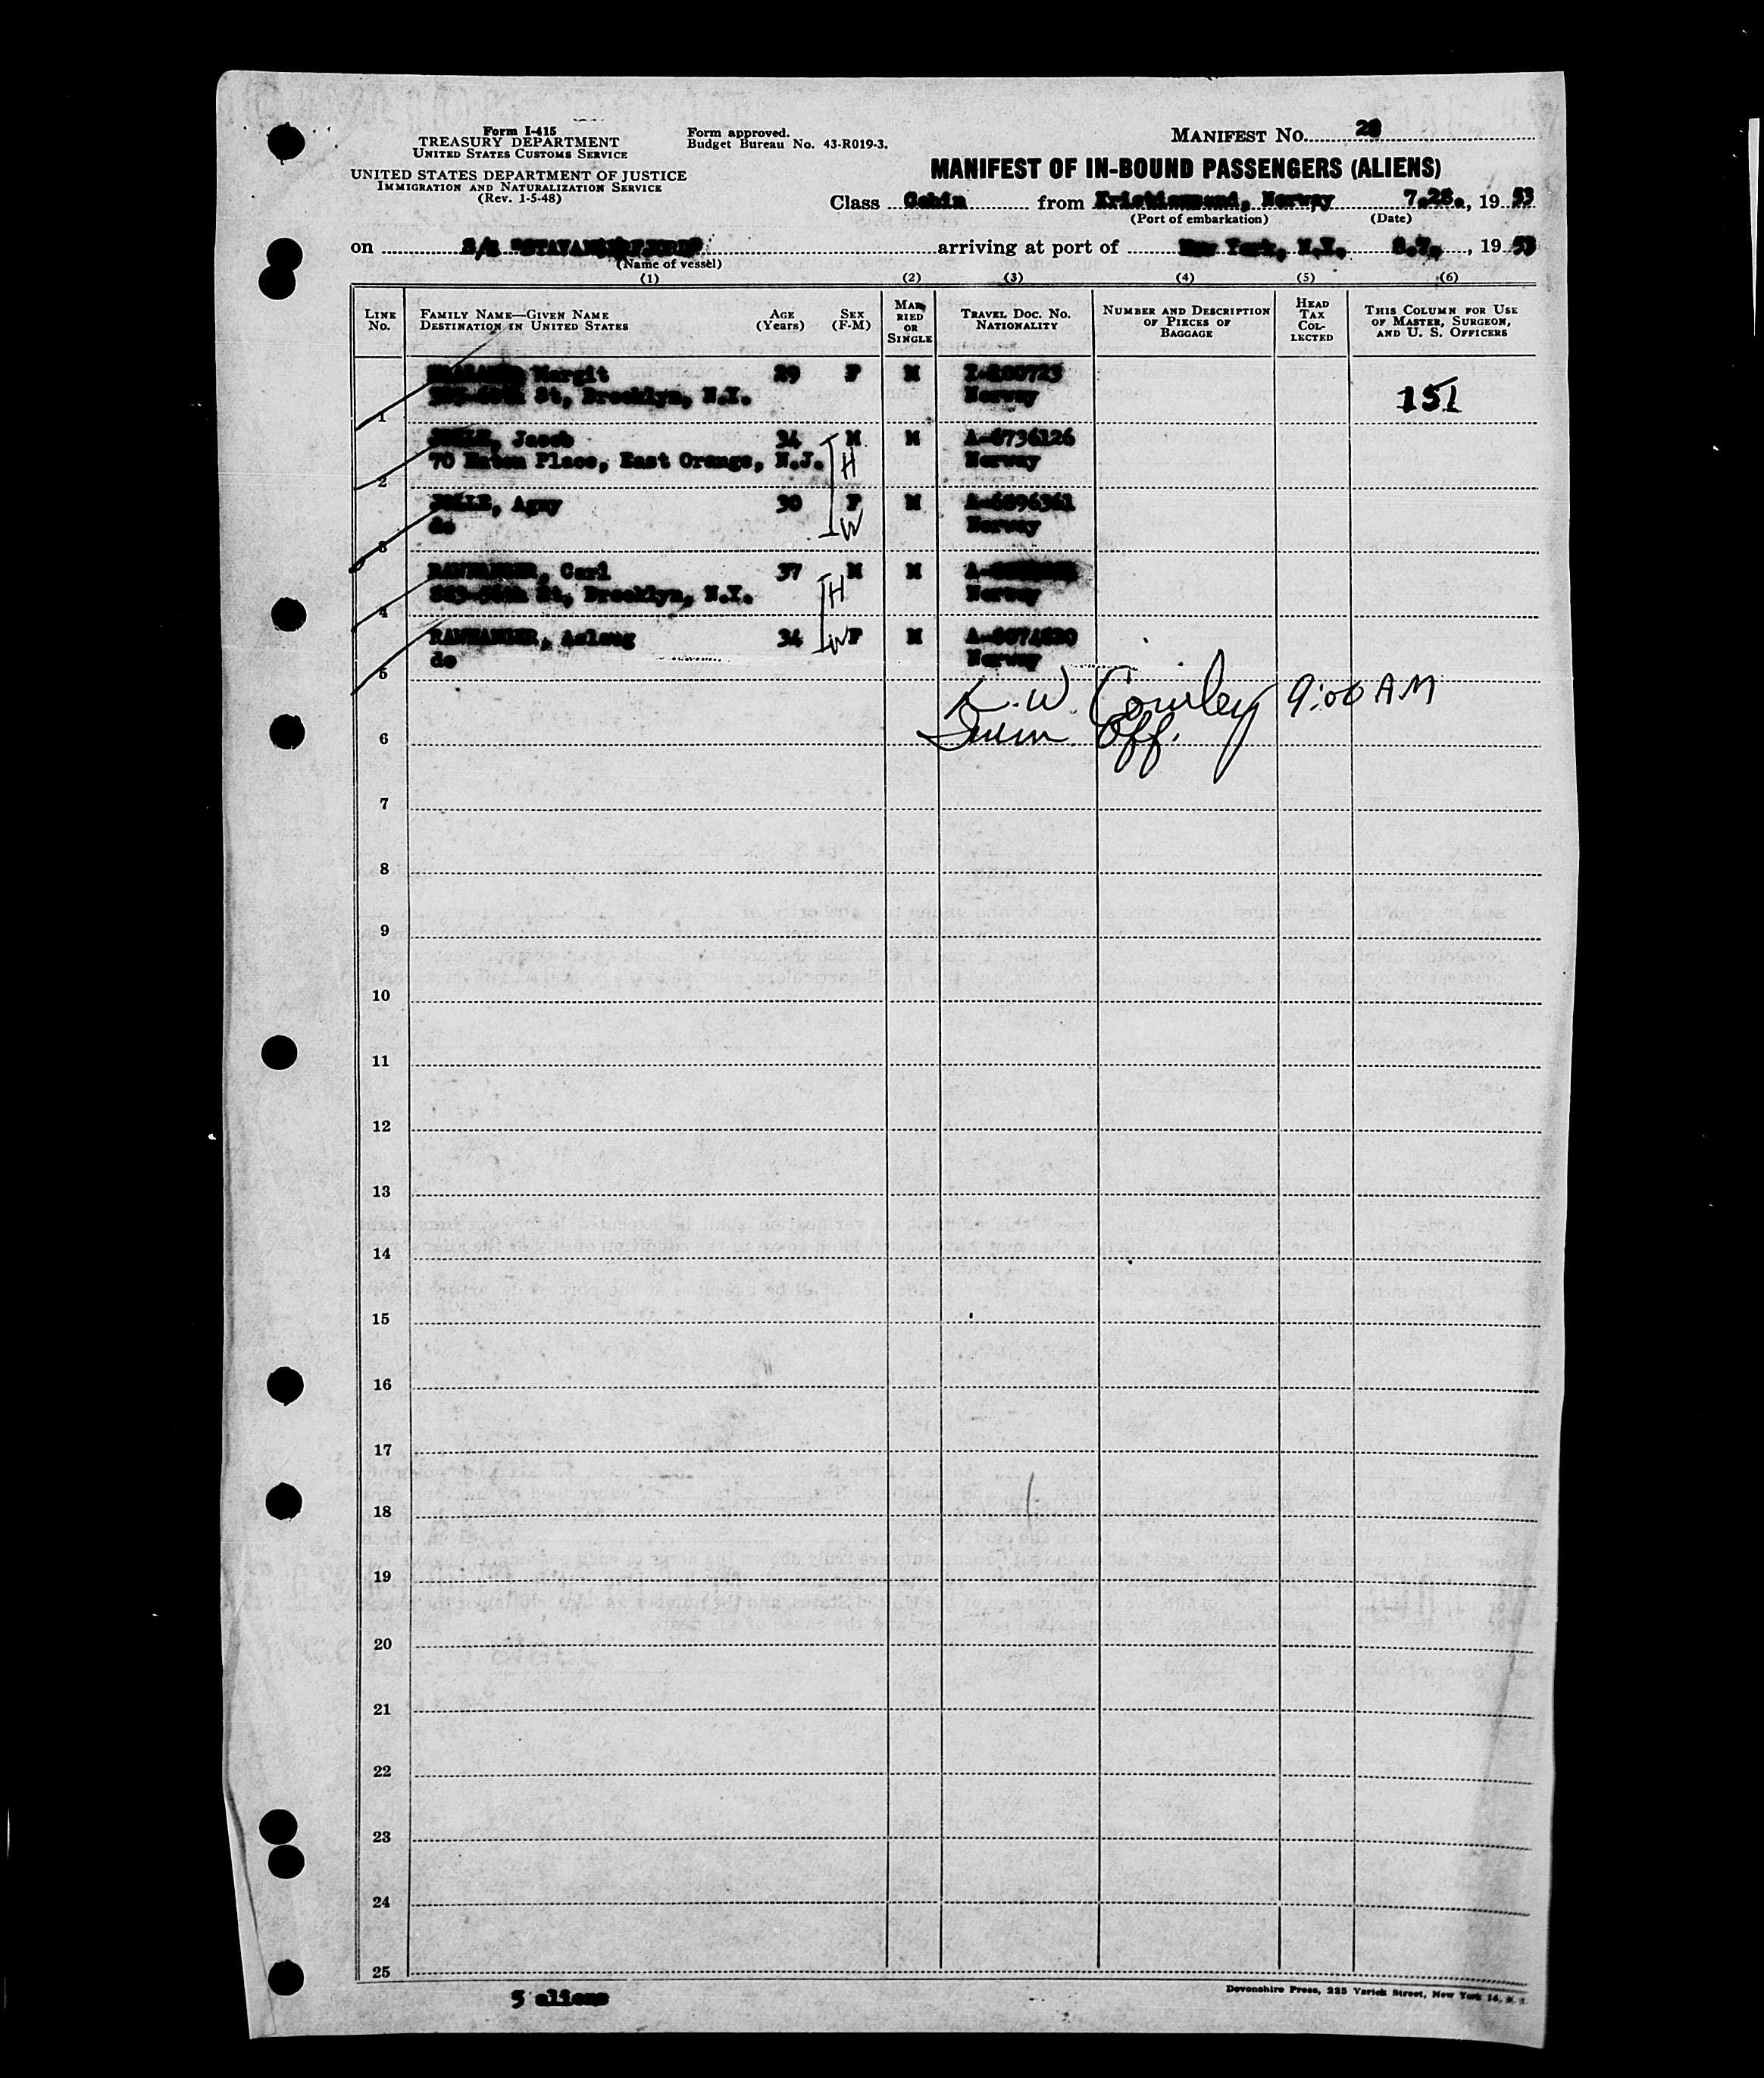 Form I-415
TREASURY DEPARTMENT
UNITED STATES CUSTOMS SERVICE
UNITED STATES DEPARTMENT OF JUSTICE
IMMIGRATION AND NATURALIZATION SERVICE
(Rev. 1-5-48)
Form approved.
Budget Bureau No. 43-R019-3.
MANIFEST No. 28
MANIFEST OF IN-BOUND PASSENGERS (ALIENS)
Class Cabin from Kristiansand, Norway 7.28., 19 53
(Port of embarkation) (Date)
on S/S "STAVANGERFJORD" arriving at port of New York, N.Y. 8.7., 19 53
(Name of vessel)
(1) (2) (3) (4) (5) (6)
LINE No.
FAMILY NAME—GIVEN NAME
DESTINATION IN UNITED STATES
AGE (Years)
SEX (F-M)
MARRIED OR SINGLE
TRAVEL DOC. NO.
NATIONALITY
NUMBER AND DESCRIPTION OF PIECES OF BAGGAGE
HEAD TAX COLLECTED
THIS COLUMN FOR USE OF MASTER, SURGEON, AND U. S. OFFICERS
Margit 29 F M
St, Brooklyn, N.Y. Norway 151
1
Jacob 34 M M A-6736126
70 Place, East Orange, N.J. H Norway
2
Agny 30 F M A-6896361
do W Norway
3
Carl 37 M M
St, Brooklyn, N.Y. H Norway
4
34 W F M
do Norway
5
K. W. Courley 9:00 AM
Imm. Off.
6
7
8
9
10
11
12
13
14
15
16
17
18
19
20
21
22
23
24
25
5 aliens
Devonshire Press, 225 Varick Street, New York 14, N. Y.